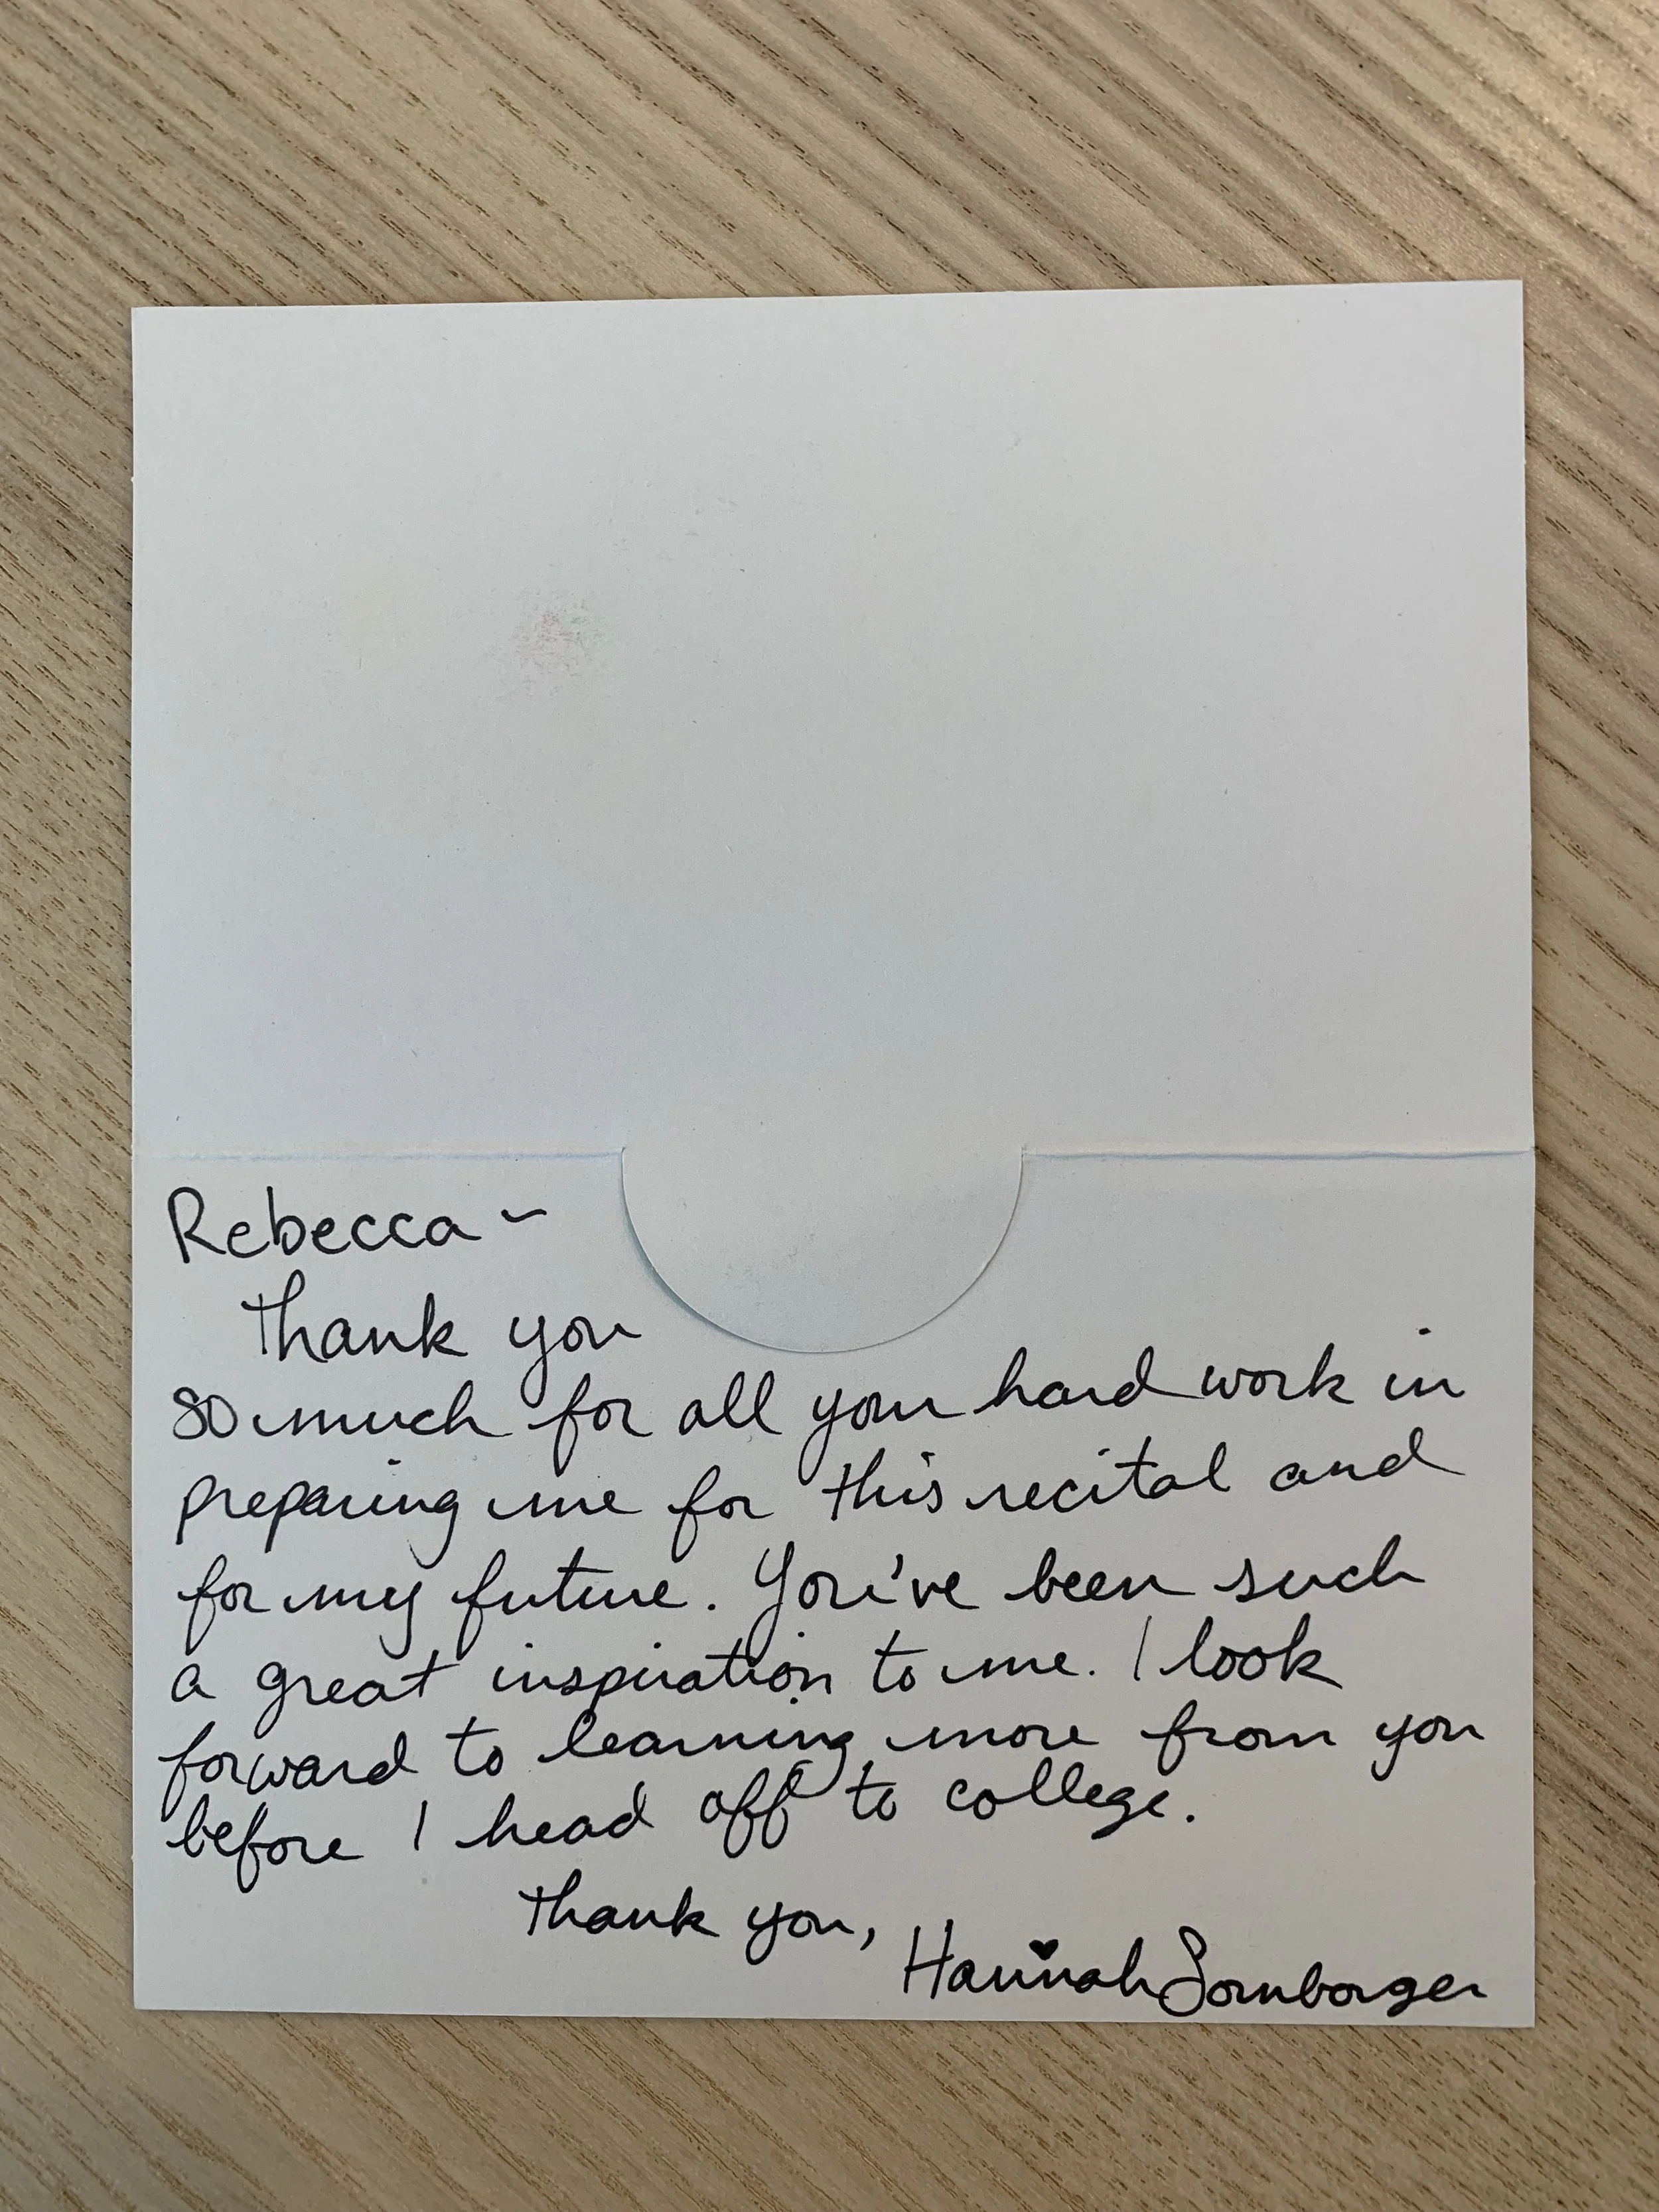 Rebecca ~
Thank you
so much for all your hard work in
preparing me for this recital and
for my future. You've been such
a great inspiration to me. I look
forward to learning more from you
before I head off to college.
Thank you,
Hannah Sornborger